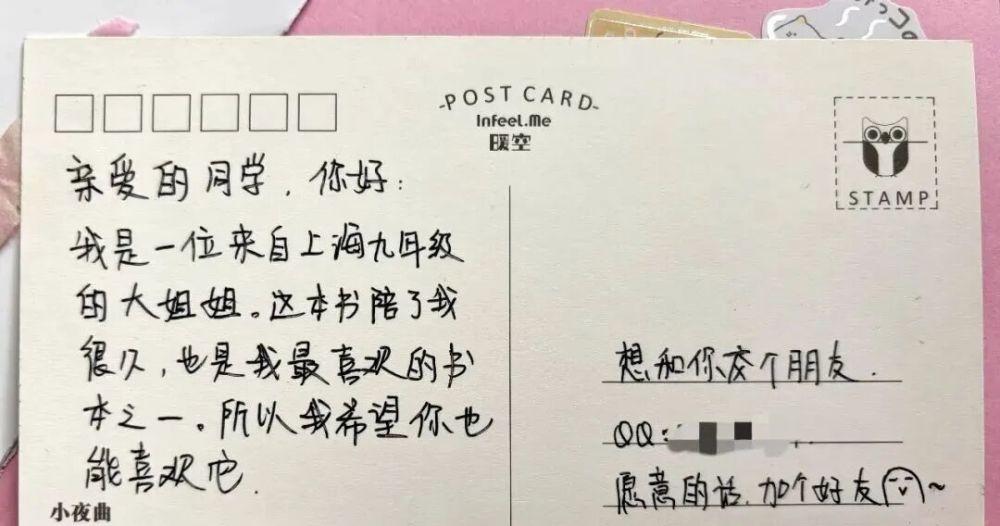 POST CARD
Infeel.Me
暖空
STAMP
亲爱的同学，你好：
我是一位来自上海九年级
的大姐姐。这本书陪了我
很久，也是我最喜欢的书
本之一。所以我希望你也
能喜欢它.
小夜曲
想和你交个朋友.
QQ:
愿意的话,加个好友~